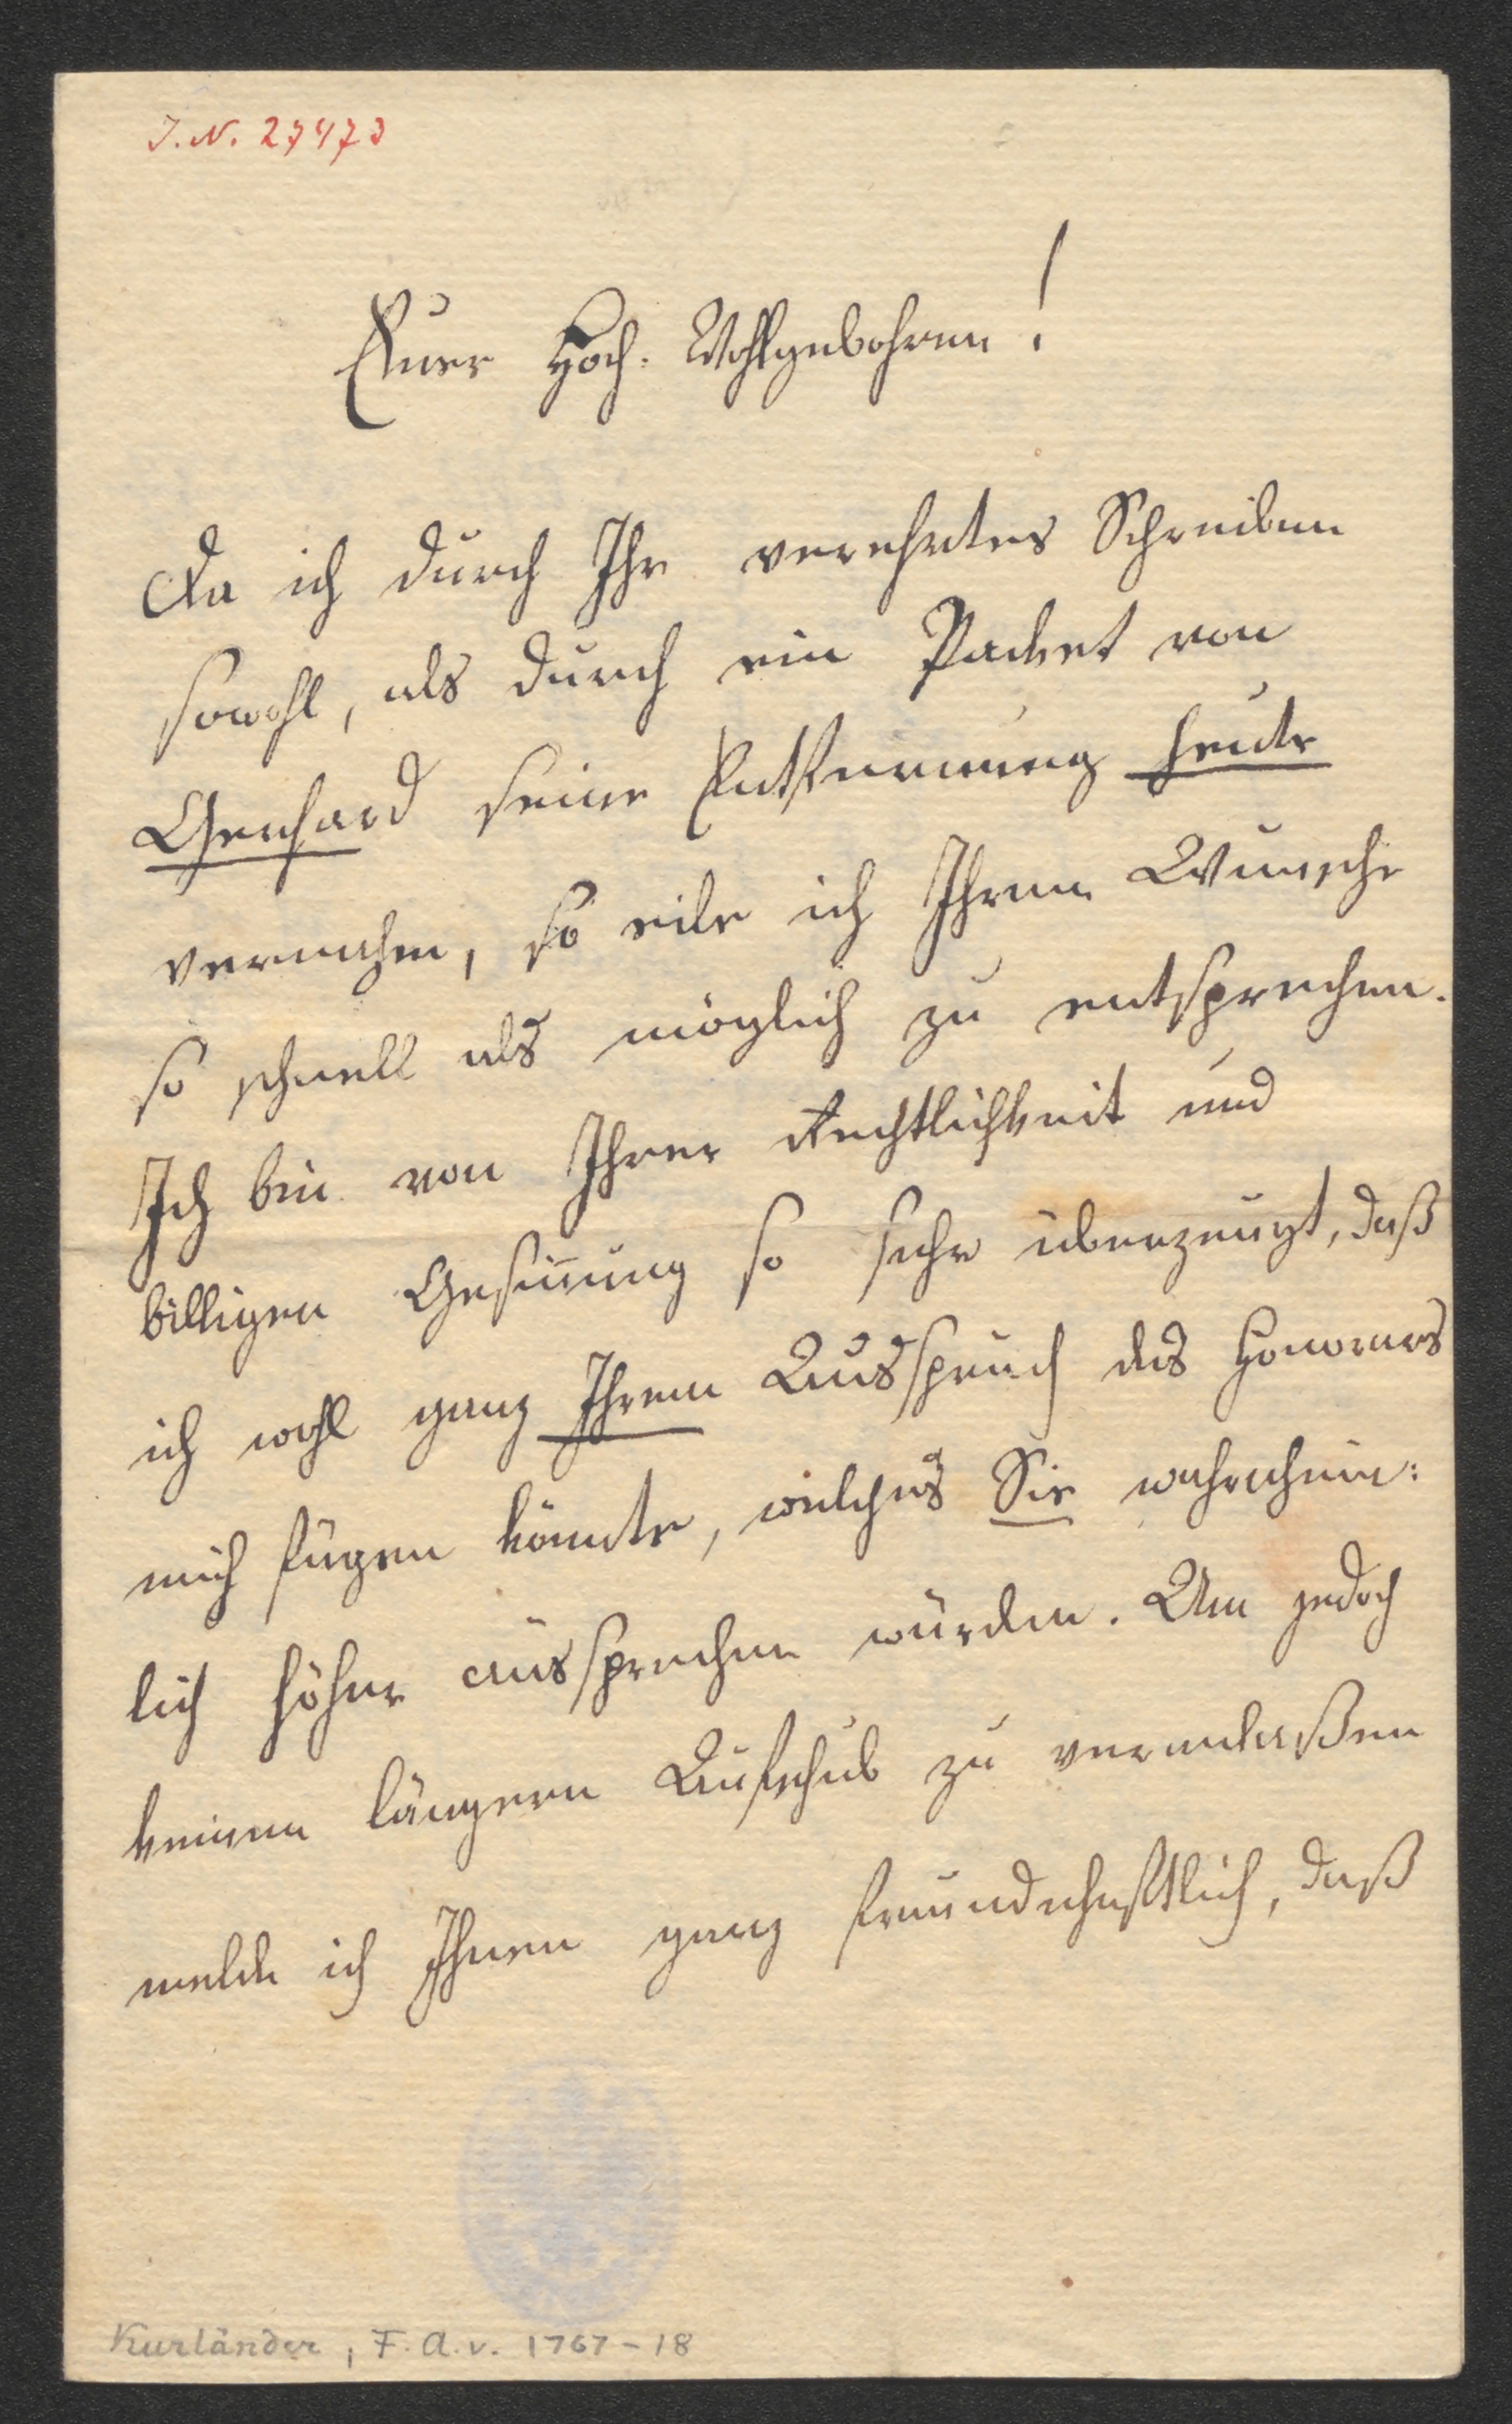 J. N. 27473
Euer Hoch. Wohlgebohren!
Da ich durch Ihr verehrtes Schreiben
sowohl, als durch ein Packet von
Gerhard seine Entfernung heute
vernahm, so eile ich Ihrem Wunsche
so schnell als möglich zu entsprechen.
Ich bin von Ihrer Rechtlichkeit und
billigen Gesinnung so sehr überzeugt, daß
ich wohl ganz Ihrem Ausspruch des Honorars
mich fügen könnte, welches Sie wahrschein:
lich höher aussprechen würden. Um jedoch
keinen längern Aufschub zu veranlaßen
melde ich Ihnen ganz freundschaftlich, daß
Kurländer, F. A. v. 1767-18